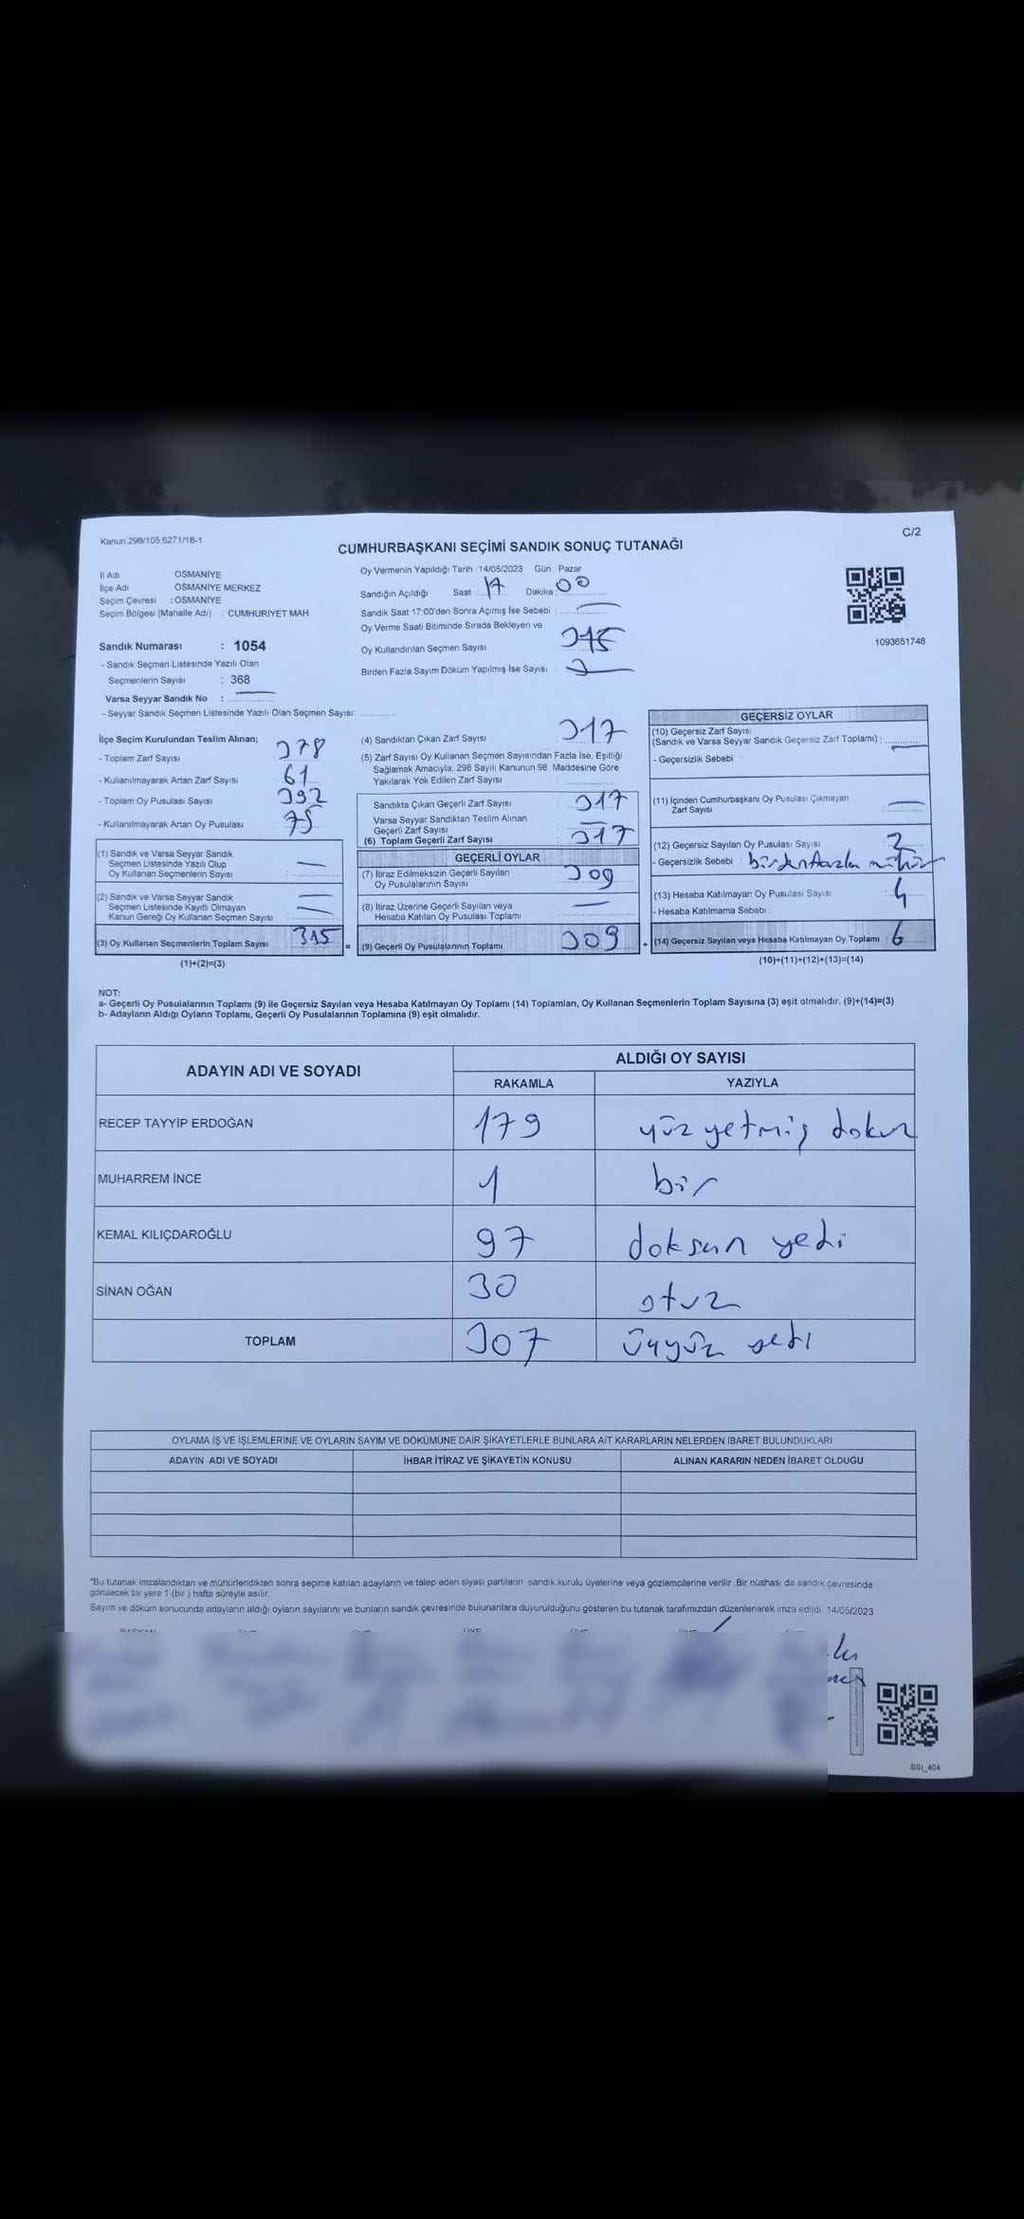 Kanun 298/105,6271/18-1
C/2
CUMHURBAŞKANI SEÇİMİ SANDIK SONUÇ TUTANAĞI
İl Adı OSMANİYE
İlçe Adı OSMANİYE MERKEZ
Seçim Çevresi : OSMANİYE
Seçim Bölgesi (Mahalle Adı) : CUMHURİYET MAH.
Oy Vermenin Yapıldığı Tarih : 14/05/2023 Gün : Pazar
Sandığın Açıldığı Saat 17 Dakika 00
Sandık Saat 17:00'den Sonra Açımış İse Sebebi :
Oy Verme Saati Bitiminde Sırada Bekleyen ve
Oy Kullandırılan Seçmen Sayısı 315
Birden Fazla Sayım Döküm Yapılmış İse Sayısı :
1093651748
Sandık Numarası : 1054
- Sandık Seçmen Listesinde Yazılı Olan
Seçmenlerin Sayısı : 368
Varsa Seyyar Sandık No :
- Seyyar Sandık Seçmen Listesinde Yazılı Olan Seçmen Sayısı:
İlçe Seçim Kurulundan Teslim Alınan;
- Toplam Zarf Sayısı 378
- Kullanılmayarak Artan Zarf Sayısı 61
- Toplam Oy Pusulası Sayısı 392
- Kullanılmayarak Artan Oy Pusulası 75
(1) Sandık ve Varsa Seyyar Sandık
Seçmen Listesinde Yazılı Olup
Oy Kullanan Seçmenlerin Sayısı
(2) Sandık ve Varsa Seyyar Sandık
Seçmen Listesinde Kayıtlı Olmayan
Kanun Gereği Oy Kullanan Seçmen Sayısı
(3) Oy Kullanan Seçmenlerin Toplam Sayısı 315
(1)+(2)=(3)
(4) Sandıktan Çıkan Zarf Sayısı 317
(5) Zarf Sayısı Oy Kullanan Seçmen Sayısından Fazla İse, Eşitliği
Sağlamak Amacıyla; 298 Sayılı Kanunun 98. Maddesine Göre
Yakılarak Yok Edilen Zarf Sayısı
Sandıkta Çıkan Geçerli Zarf Sayısı 317
Varsa Seyyar Sandıktan Teslim Alınan
Geçerli Zarf Sayısı
(6) Toplam Geçerli Zarf Sayısı 317
GEÇERLİ OYLAR
(7) İtiraz Edilmeksizin Geçerli Sayılan
Oy Pusulalarının Sayısı 309
(8) İtiraz Üzerine Geçerli Sayılan veya
Hesaba Katılan Oy Pusulası Toplamı
= (9) Geçerli Oy Pusulalarının Toplamı 309
GEÇERSİZ OYLAR
(10) Geçersiz Zarf Sayısı
(Sandık ve Varsa Seyyar Sandık Geçersiz Zarf Toplamı) :
- Geçersizlik Sebebi
(11) İçinden Cumhurbaşkanı Oy Pusulası Çıkmayan
Zarf Sayısı
(12) Geçersiz Sayılan Oy Pusulası Sayısı 2
- Geçersizlik Sebebi : birden fazla mühür
(13) Hesaba Katılmayan Oy Pusulası Sayısı 4
- Hesaba Katılmama Sebebi :
+ (14) Geçersiz Sayılan veya Hesaba Katılmayan Oy Toplamı 6
(10)+(11)+(12)+(13)=(14)
NOT:
a- Geçerli Oy Pusulalarının Toplamı (9) ile Geçersiz Sayılan veya Hesaba Katılmayan Oy Toplamı (14) Toplamları, Oy Kullanan Seçmenlerin Toplam Sayısına (3) eşit olmalıdır. (9)+(14)=(3)
b- Adayların Aldığı Oyların Toplamı, Geçerli Oy Pusulalarının Toplamına (9) eşit olmalıdır.
ADAYIN ADI VE SOYADI
ALDIĞI OY SAYISI
RAKAMLA YAZIYLA
RECEP TAYYİP ERDOĞAN 179 yüz yetmiş dokuz
MUHARREM İNCE 1 bir
KEMAL KILIÇDAROĞLU 97 doksan yedi
SİNAN OĞAN 30 otuz
TOPLAM 307 üçyüz yedi
OYLAMA İŞ VE İŞLEMLERİNE VE OYLARIN SAYIM VE DÖKÜMÜNE DAİR ŞİKAYETLERLE BUNLARA AİT KARARLARIN NELERDEN İBARET BULUNDUKLARI
ADAYIN ADI VE SOYADI İHBAR İTİRAZ VE ŞİKAYETİN KONUSU ALINAN KARARIN NEDEN İBARET OLDUĞU
*Bu tutanak imzalandıktan ve mühürlendikten sonra seçime katılan adayların ve talep eden siyasi partilerin sandık kurulu üyelerine veya gözlemcilerine verilir. Bir nüshası da sandık çevresinde
görülecek bir yere 1 (bir) hafta süreyle asılır.
Sayım ve döküm sonucunda adayların aldığı oyların sayılarını ve bunların sandık çevresinde bulunanlara duyurulduğunu gösteren bu tutanak tarafımızdan düzenlenerek imza edildi. 14/05/2023